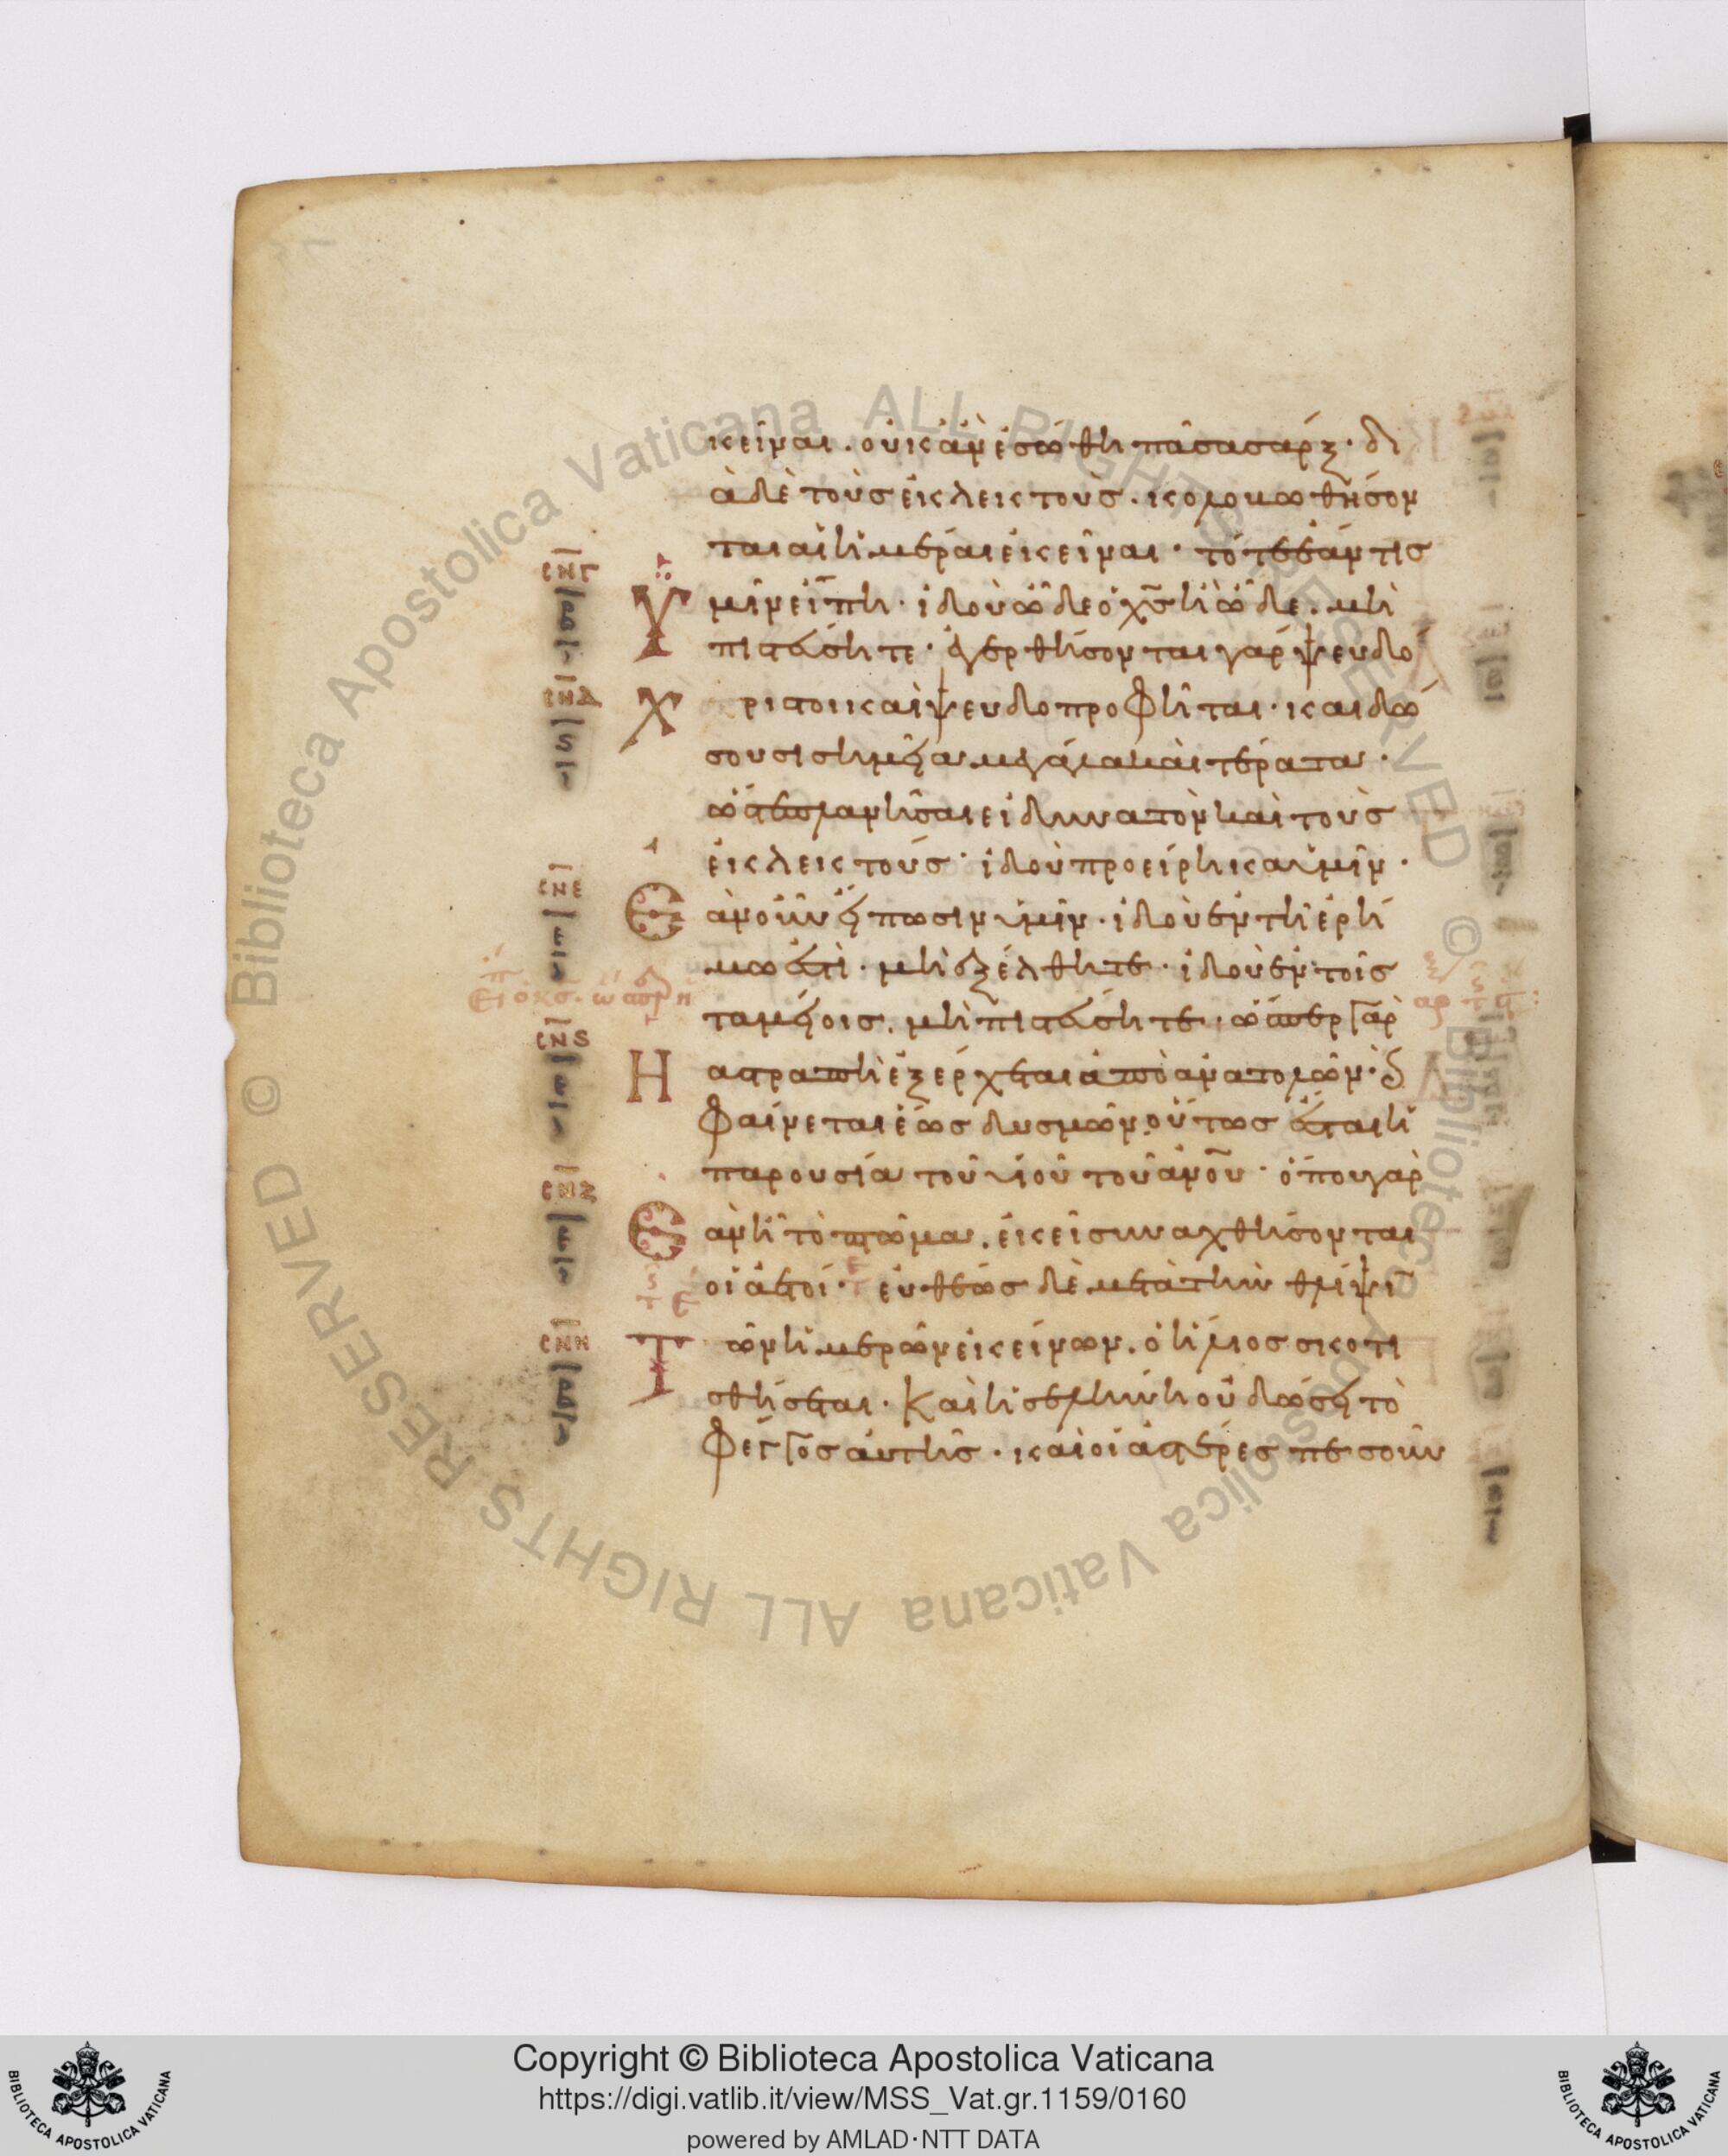 κεῖναι. οὐκ ἂν ἐσώθη πᾶσα σάρξ· δι
ὰ δὲ τοὺς ἐκλεκτοὺς. κολοβωθήσον
ται αἱ ἡμέραι ἐκεῖναι· τότε ἐάν τις
Ὑμῖν εἴπη· ἰδοὺ ὧδε ὁ χ̅ς̅ ἢ ὧδε. μὴ
πιστεύσητε· ἐγερθήσονται γὰρ ψευδό
Χριστοι καὶ ψευδοπροφῆται· καὶ δώ
σουσι σημεῖα μεγάλα καὶ τέρατα·
ὥστε πλανῆσαι εἰ δυνατὸν καὶ τοὺς
ἐκλεκτούς· ἰδοὺ προείρηκα ὑμῖν·
Ἐὰν οὖν εἴπωσιν ὑμῖν· ἰδοὺ ἐν τῆ ἐρή
μω ἐστὶ· μὴ ἐξέλθητε· ἰδοὺ ἐν τοῖς
ταμείοις. μὴ πιστεύσητε· ὥσπερ γὰρ
Ἡ ἀστραπὴ ἐξέρχεται ἀπὸ ἀνατολῶν· καὶ
φαίνεται ἕως δυσμῶν· οὕτως ἔσται ἡ
παρουσία τοῦ υἱοῦ τοῦ ἀν̅ο̅υ̅· ὅπου γὰρ
Ἐὰν ἦ τὸ πτῶμα. ἐκεῖ συναχθήσονται
οἱ ἀετοί· εὐθέως δὲ μετὰ τὴν θλίψιν
Τῶν ἡμερῶν ἐκείνων. ὁ ἥλιος σκοτι
σθήσεται. Καὶ ἡ σελήνη οὐ δώσει τὸ
φέγγος αὐτῆς· καὶ οἱ ἀστέρες πεσοῦν
σ̅ν̅γ̅
σ̅ν̅δ̅
σ̅ν̅ε̅
σ̅ν̅ς̅
σ̅ν̅ζ̅
σ̅ν̅η̅
© Biblioteca Apostolica Vaticana ALL RIGHTS RESERVED
© Biblioteca Apostolica Vaticana ALL RIGHTS RESERVED
Copyright © Biblioteca Apostolica Vaticana
https://digi.vatlib.it/view/MSS_Vat.gr.1159/0160
powered by AMLAD·NTT DATA
BIBLIOTECA APOSTOLICA VATICANA
BIBLIOTECA APOSTOLICA VATICANA